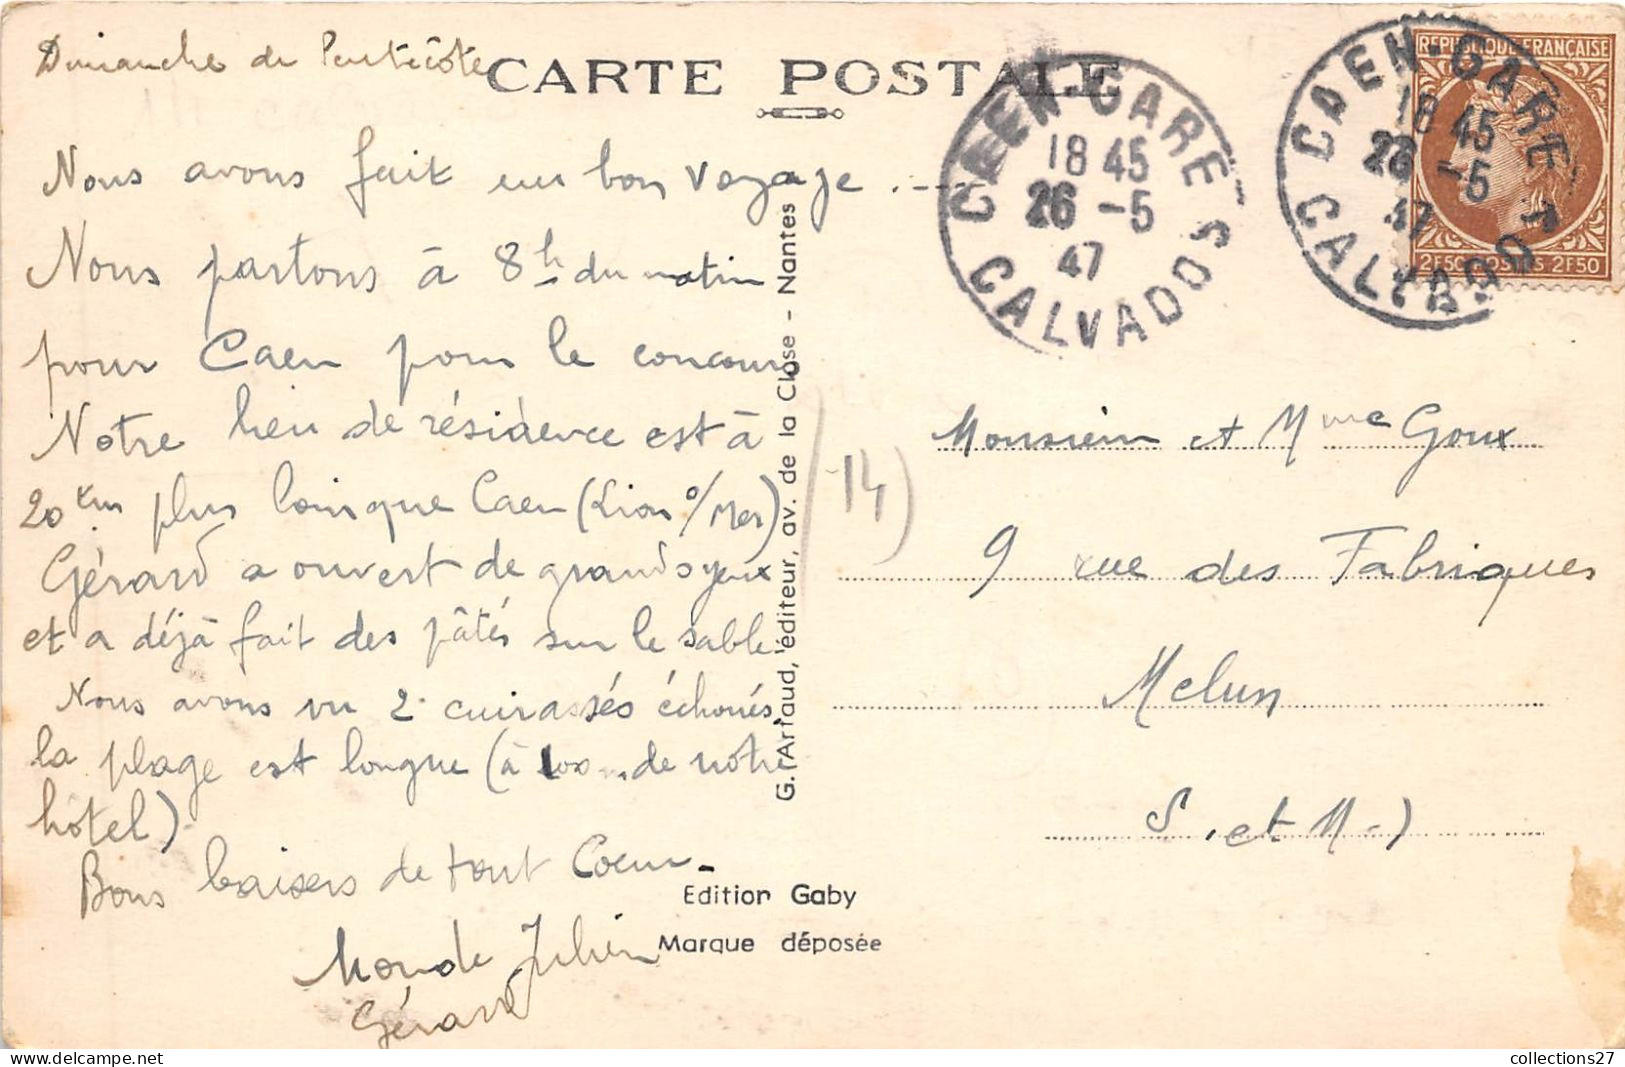 Dimanche de Pentecôte
CARTE POSTALE
Nous avons fait un bon voyage ....
Nous partons à 8h du matin
pour Caen pour le concours
Notre lieu de résidence est à
20 km plus loin que Caen (Lion s/Mer)
Gérard a ouvert de grands yeux
et a déjà fait des pâtés sur le sable
Nous avons vu 2 cuirassés échoués,
la plage est longue (à 100 m de notre
hôtel).
Bons baisers de tout Coeur
Julien
Gérard
G. Artaud, éditeur, av. de la Close - Nantes
Edition Gaby
Marque déposée
(14)
CAEN-GARE
18 45
26 -5
47
CALVADOS
CAEN-GARE
18 45
26 -5
47
CALVADOS
REPUBLIQUE FRANÇAISE
2F50 POSTES 2F50
Monsieur et Mme Goux
9 rue des Fabriques
Melun
S. et M.)
collections27